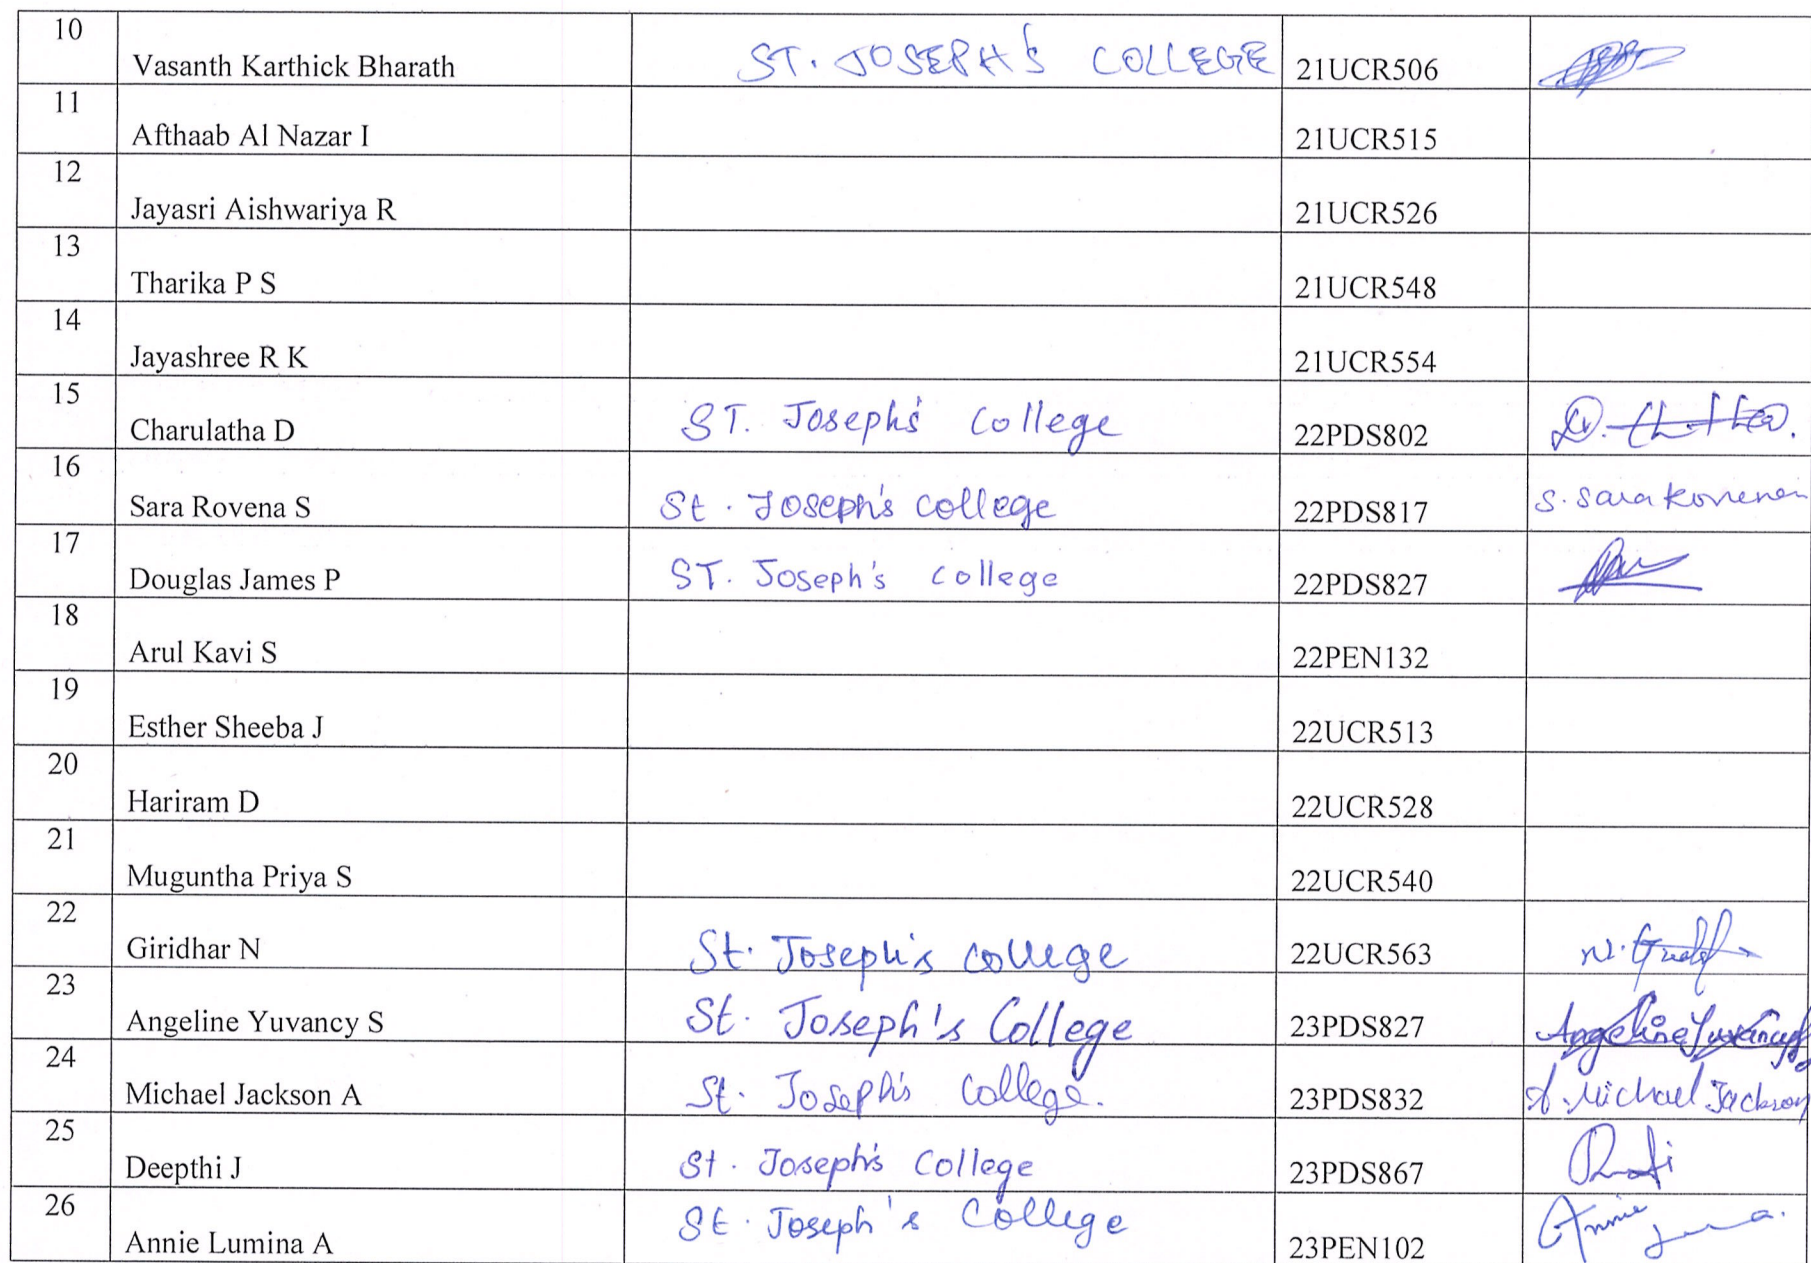 10 Vasanth Karthick Bharath ST. JOSEPH'S COLLEGE 21UCR506
11 Afthaab Al Nazar I 21UCR515
12 Jayasri Aishwariya R 21UCR526
13 Tharika P S 21UCR548
14 Jayashree R K 21UCR554
15 Charulatha D ST. Joseph's College 22PDS802
16 Sara Rovena S St. Joseph's college 22PDS817 S. Sara Rovena
17 Douglas James P ST. Joseph's college 22PDS827
18 Arul Kavi S 22PEN132
19 Esther Sheeba J 22UCR513
20 Hariram D 22UCR528
21 Muguntha Priya S 22UCR540
22 Giridhar N St. Joseph's college 22UCR563
23 Angeline Yuvancy S St. Joseph's College 23PDS827 Angeline Yuvancy
24 Michael Jackson A St. Joseph's College. 23PDS832 A. Michael Jackson
25 Deepthi J St. Joseph's College 23PDS867
26 Annie Lumina A St. Joseph's College 23PEN102 Annie